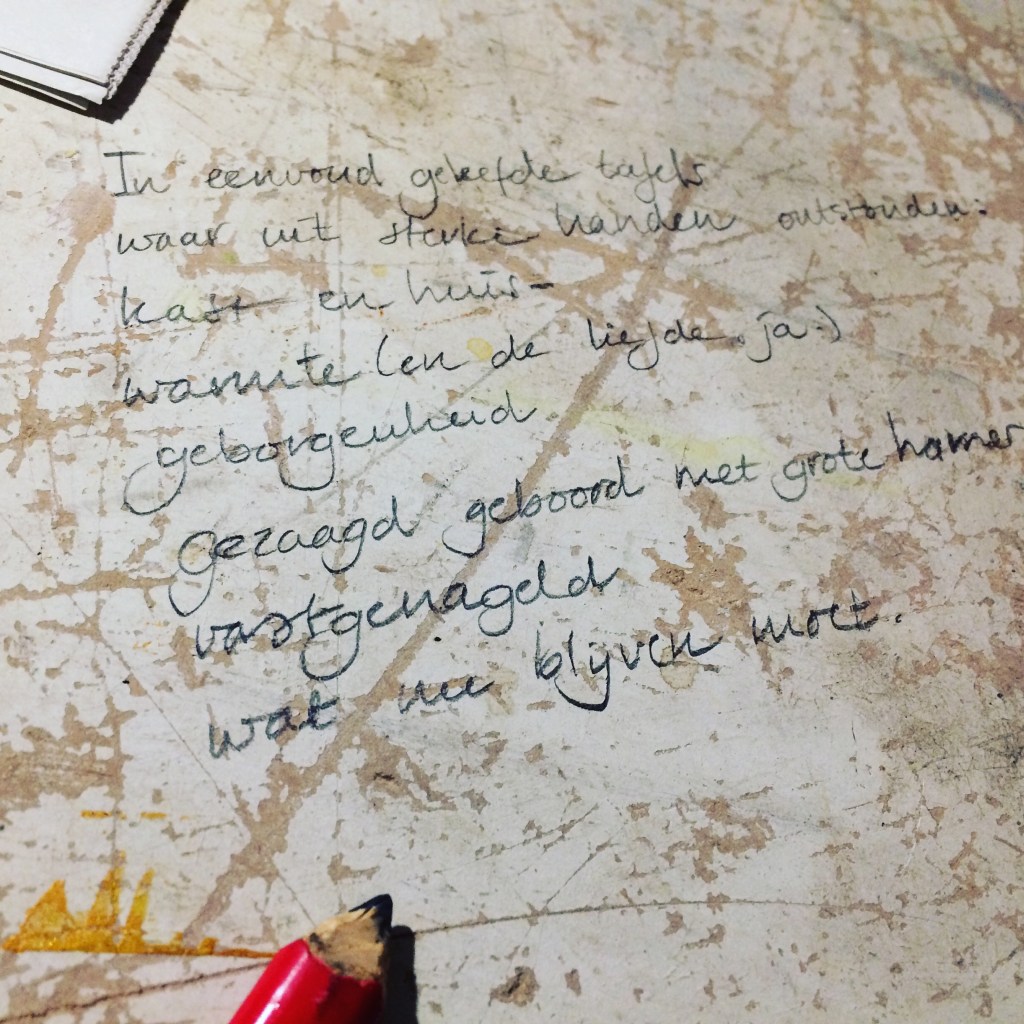 In eenvoud geleefde tafels
waar uit sterke handen ontstonden:
kast en huis-
warmte (en de liefde. ja.)
geborgenheid
gezaagd geboord met grote hamer
vastgenageld
wat nu blijven moet.